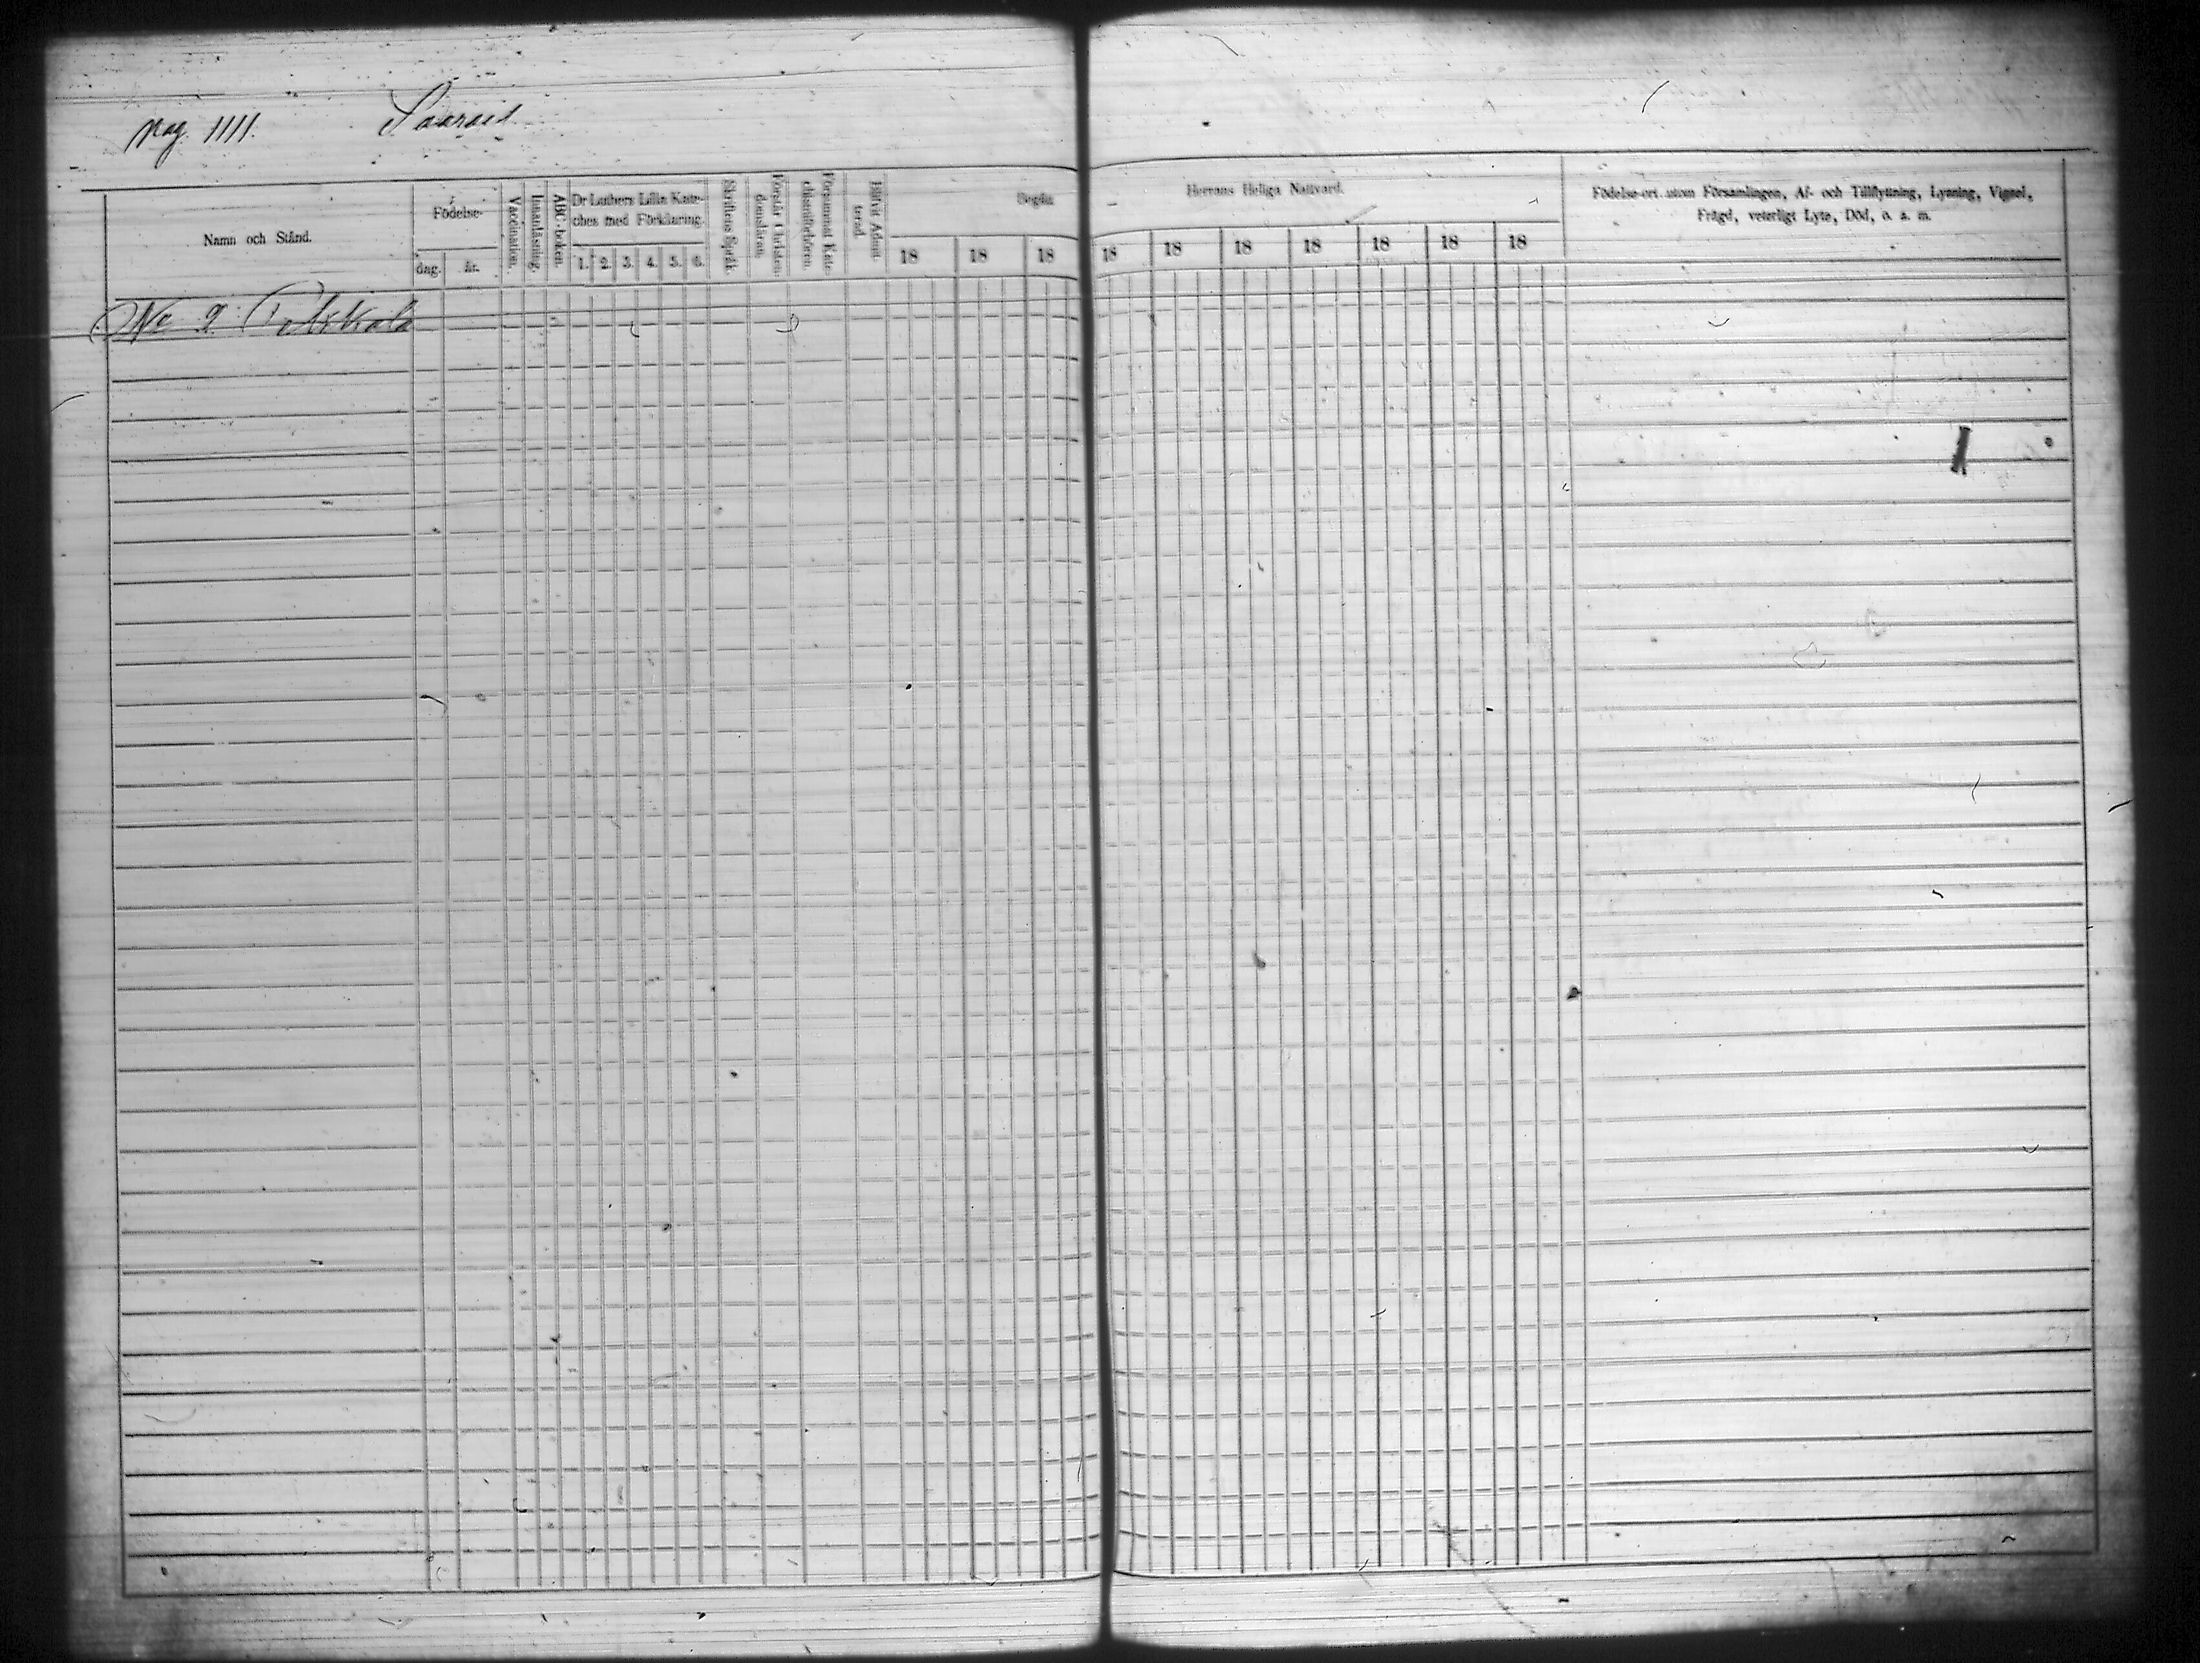 pag. 1111. Saarois
Namn och Stånd.
Födelse-
dag. år.
Vaccination.
Innanläsning.
ABC-boken.
Dr Luthers Lilla Kate-
ches med Förklaring.
1. 2. 3. 4. 5. 6.
Skriftens Språk.
Förstår Christen-
domsläran.
Försummat Kate-
chismiförhören.
Blifvit Admit-
terad.
Begått
18 18 18
Herrans Heliga Nattvard.
18 18 18 18 18 18 18
Födelse-ort utom Församlingen, Af- och Tillflyttning, Lysning, Vigsel,
Frägd, veterligt Lyte, Död, o. s. m.
No 9